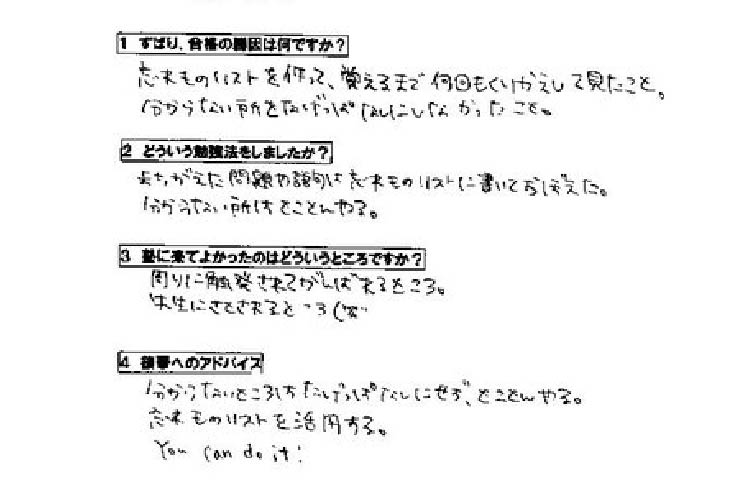 1 ずばり、合格の勝因は何ですか？
忘れものリストを作って、覚えるまで何回もくりかえして見たこと。
分からない所をなげっぱなしにしなかったこと。
2 どういう勉強法をしましたか？
まちがえた問題や語句は忘れものリストに書いておぼえた。
分からない所はとことんやる。
3 塾に来てよかったのはどういうところですか？
周りに触発されてがんばれるところ。
先生にさとされるところ(笑)
4 後輩へのアドバイス
分からないところはなげっぱなしにせず、とことんやる。
忘れものリストを活用する。
You can do it!